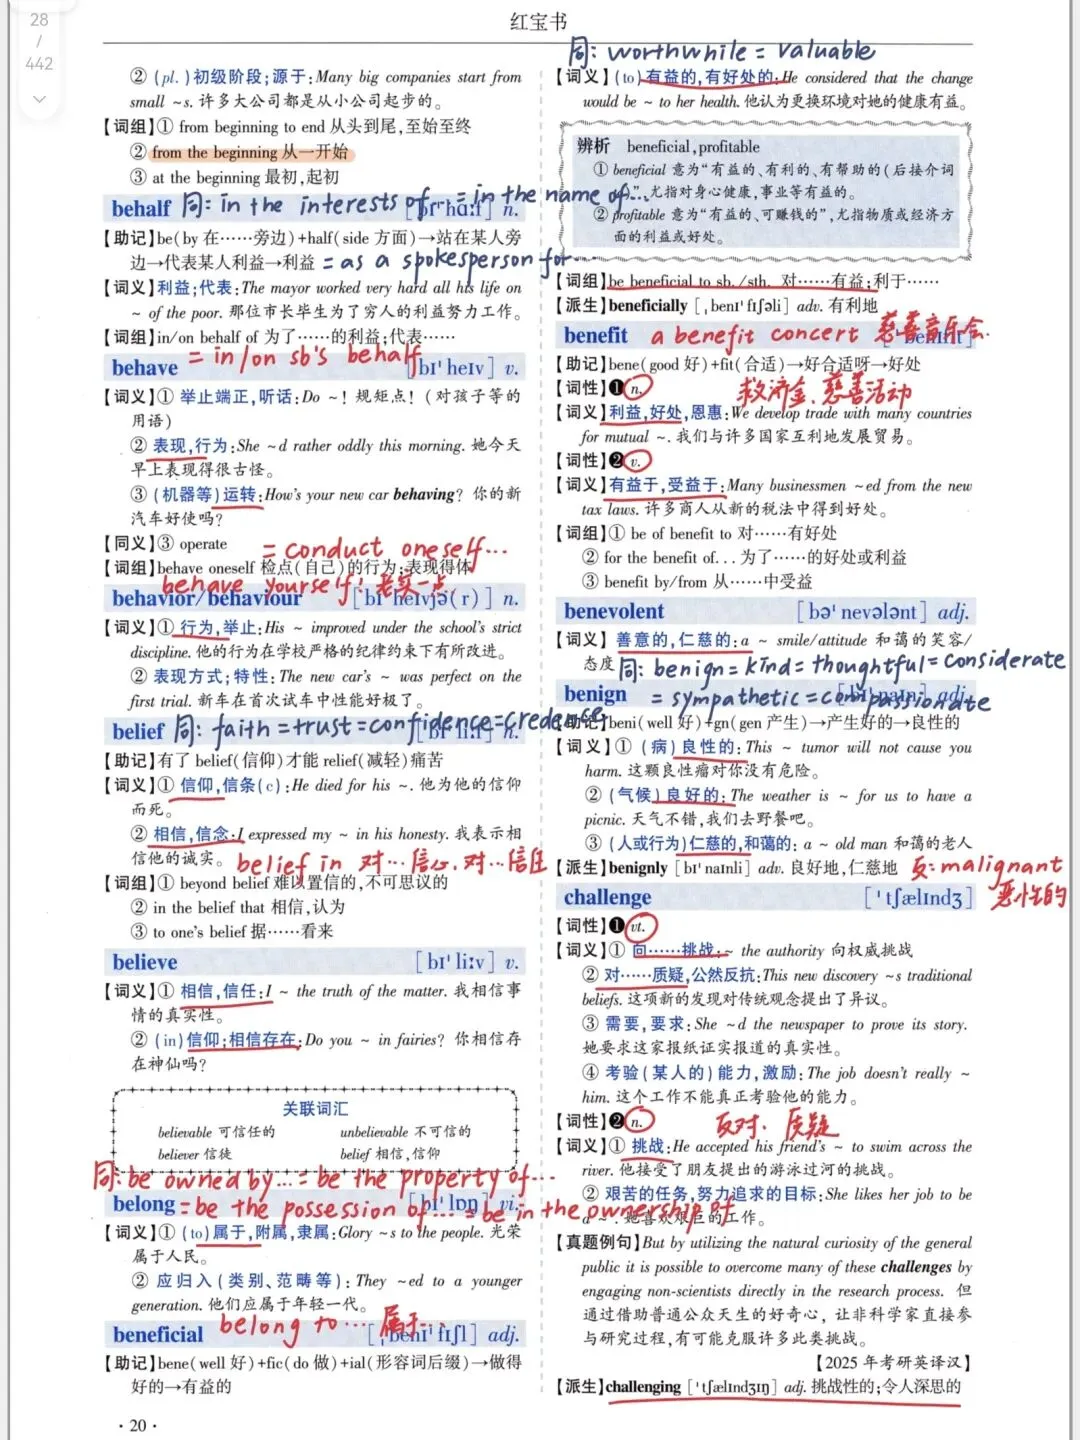 28
/
442
红宝书
② (pl.)初级阶段;源于:Many big companies start from
small ~s. 许多大公司都是从小公司起步的。
【词组】① from beginning to end 从头到尾,至始至终
② from the beginning 从一开始
③ at the beginning 最初,起初
behalf 同: in the interests of… = in the name of… n.
【助记】be(by 在……旁边)+half(side 方面)→站在某人旁
边→代表某人利益→利益 = as a spokesperson for…
【词义】利益;代表:The mayor worked very hard all his life on
~ of the poor. 那位市长毕生为了穷人的利益努力工作。
【词组】in/on behalf of 为了……的利益;代表……
= in/on sb's behalf
behave [bɪˈheɪv] v.
【词义】① 举止端正,听话:Do ~! 规矩点! (对孩子等的
用语)
② 表现,行为:She ~d rather oddly this morning. 她今天
早上表现得很古怪。
③ (机器等)运转:How's your new car behaving? 你的新
汽车好使吗?
【同义】③ operate
= conduct oneself…
【词组】behave oneself 检点(自己)的行为;表现得体
behave yourself! 老实一点
behavior/behaviour [bɪˈheɪvjə(r)] n.
【词义】① 行为,举止:His ~ improved under the school's strict
discipline. 他的行为在学校严格的纪律约束下有所改进。
② 表现方式;特性:The new car's ~ was perfect on the
first trial. 新车在首次试车中性能好极了。
belief 同: faith = trust = confidence = credence n.
【助记】有了 belief(信仰)才能 relief(减轻)痛苦
【词义】① 信仰,信条(c):He died for his ~. 他为他的信仰
而死。
② 相信,信念:I expressed my ~ in his honesty. 我表示相
信他的诚实。 belief in 对…信心.对…信任
【词组】① beyond belief 难以置信的,不可思议的
② in the belief that 相信,认为
③ to one's belief 据……看来
believe [bɪˈliːv] v.
【词义】① 相信,信任:I ~ the truth of the matter. 我相信事
情的真实性。
② (in)信仰;相信存在:Do you ~ in fairies? 你相信存
在神仙吗?
关联词汇
believable 可信任的 unbelievable 不可信的
believer 信徒 belief 相信,信仰
同: be owned by… = be the property of…
belong = be the possession of… = be in the ownership of [bɪˈlɒŋ] vi.
【词义】① (to)属于,附属,隶属:Glory ~s to the people. 光荣
属于人民。
② 应归入(类别、范畴等):They ~ed to a younger
generation. 他们应属于年轻一代。
belong to… 属于…
beneficial [ˌbenɪˈfɪʃl] adj.
【助记】bene(well 好)+fic(do 做)+ial(形容词后缀)→做得
好的→有益的
· 20 ·
同: worthwhile = valuable
【词义】(to)有益的,有好处的:He considered that the change
would be ~ to her health. 他认为更换环境对她的健康有益。
辨析 beneficial,profitable
① beneficial 意为“有益的、有利的、有帮助的(后接介词
”,尤指对身心健康,事业等有益的。
② profitable 意为“有益的、可赚钱的”,尤指物质或经济方
面的利益或好处。
【词组】be beneficial to sb./sth. 对……有益;利于……
【派生】beneficially [ˌbenɪˈfɪʃəli] adv. 有利地
benefit a benefit concert 慈善音乐会.
【助记】bene(good 好)+fit(合适)→好合适呀→好处
【词性】❶ n. 救济金、慈善活动
【词义】利益,好处,恩惠:We develop trade with many countries
for mutual ~. 我们与许多国家互利地发展贸易。
【词性】❷ v.
【词义】有益于,受益于:Many businessmen ~ed from the new
tax laws. 许多商人从新的税法中得到好处。
【词组】① be of benefit to 对……有好处
② for the benefit of... 为了……的好处或利益
③ benefit by/from 从……中受益
benevolent [bəˈnevələnt] adj.
【词义】善意的,仁慈的:a ~ smile/attitude 和蔼的笑容/
态度 同: benign = kind = thoughtful = considerate
benign = sympathetic = compassionate adj.
【助记】beni(well 好)+gn(gen 产生)→产生好的→良性的
【词义】① (病)良性的:This ~ tumor will not cause you
harm. 这颗良性瘤对你没有危险。
② (气候)良好的:The weather is ~ for us to have a
picnic. 天气不错,我们去野餐吧。
③ (人或行为)仁慈的,和蔼的:a ~ old man 和蔼的老人
【派生】benignly [bɪˈnaɪnli] adv. 良好地,仁慈地 反: malignant
恶性的
challenge [ˈtʃælɪndʒ]
【词性】❶ vt.
【词义】① 向……挑战:~ the authority 向权威挑战
② 对……质疑,公然反抗:This new discovery ~s traditional
beliefs. 这项新的发现对传统观念提出了异议。
③ 需要,要求:She ~d the newspaper to prove its story.
她要求这家报纸证实报道的真实性。
④ 考验(某人的)能力,激励:The job doesn't really ~
him. 这个工作不能真正考验他的能力。
【词性】❷ n. 反对、质疑
【词义】① 挑战:He accepted his friend's ~ to swim across the
river. 他接受了朋友提出的游泳过河的挑战。
② 艰苦的任务,努力追求的目标:She likes her job to be
a ~. 她喜欢艰巨的工作。
【真题例句】But by utilizing the natural curiosity of the general
public it is possible to overcome many of these challenges by
engaging non-scientists directly in the research process. 但
通过借助普通公众天生的好奇心, 让非科学家直接参
与研究过程,有可能克服许多此类挑战。
【2025 年考研英译汉】
【派生】challenging [ˈtʃælɪndʒɪŋ] adj. 挑战性的;令人深思的